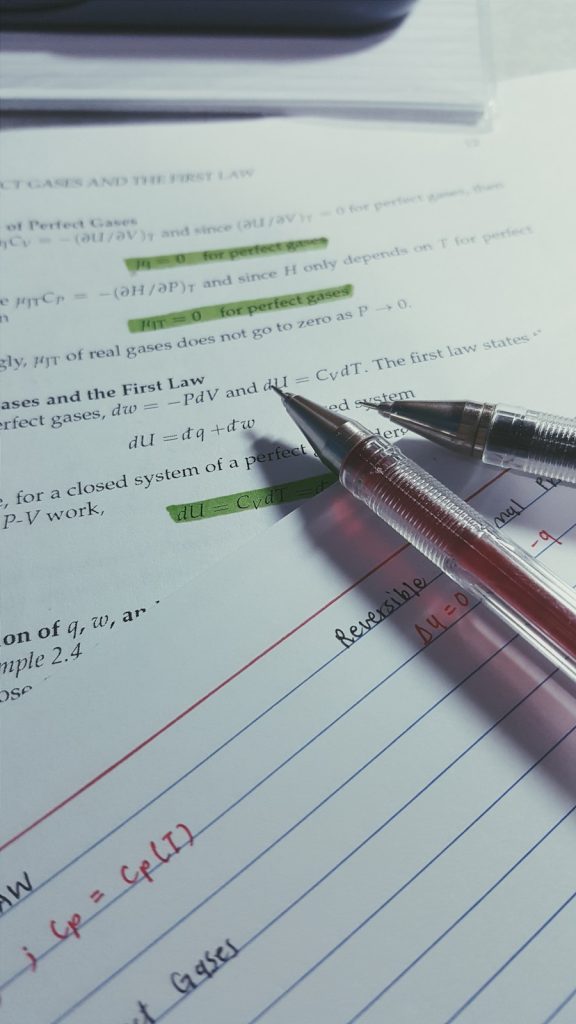 CT GASES AND THE FIRST LAW
of Perfect Gases
JCV = −(∂U/∂V)T and since (∂U/∂V)T = 0 for perfect gases, then
μJ = 0 for perfect gases
e μJTCP = −(∂H/∂P)T and since H only depends on T for perfect
n
μJT = 0 for perfect gases
gly, μJT of real gases does not go to zero as P → 0.
ases and the First Law
erfect gases, dw = −PdV and dU = CVdT. The first law states
dU = đq + đw
ed system
e, for a closed system of a perfect
P-V work,
dU = CVdT = d
on of q, w, an
mple 2.4
ose
Reversible
ΔU = 0
-q
AW
; Cp = Cp(T)
ct Gases